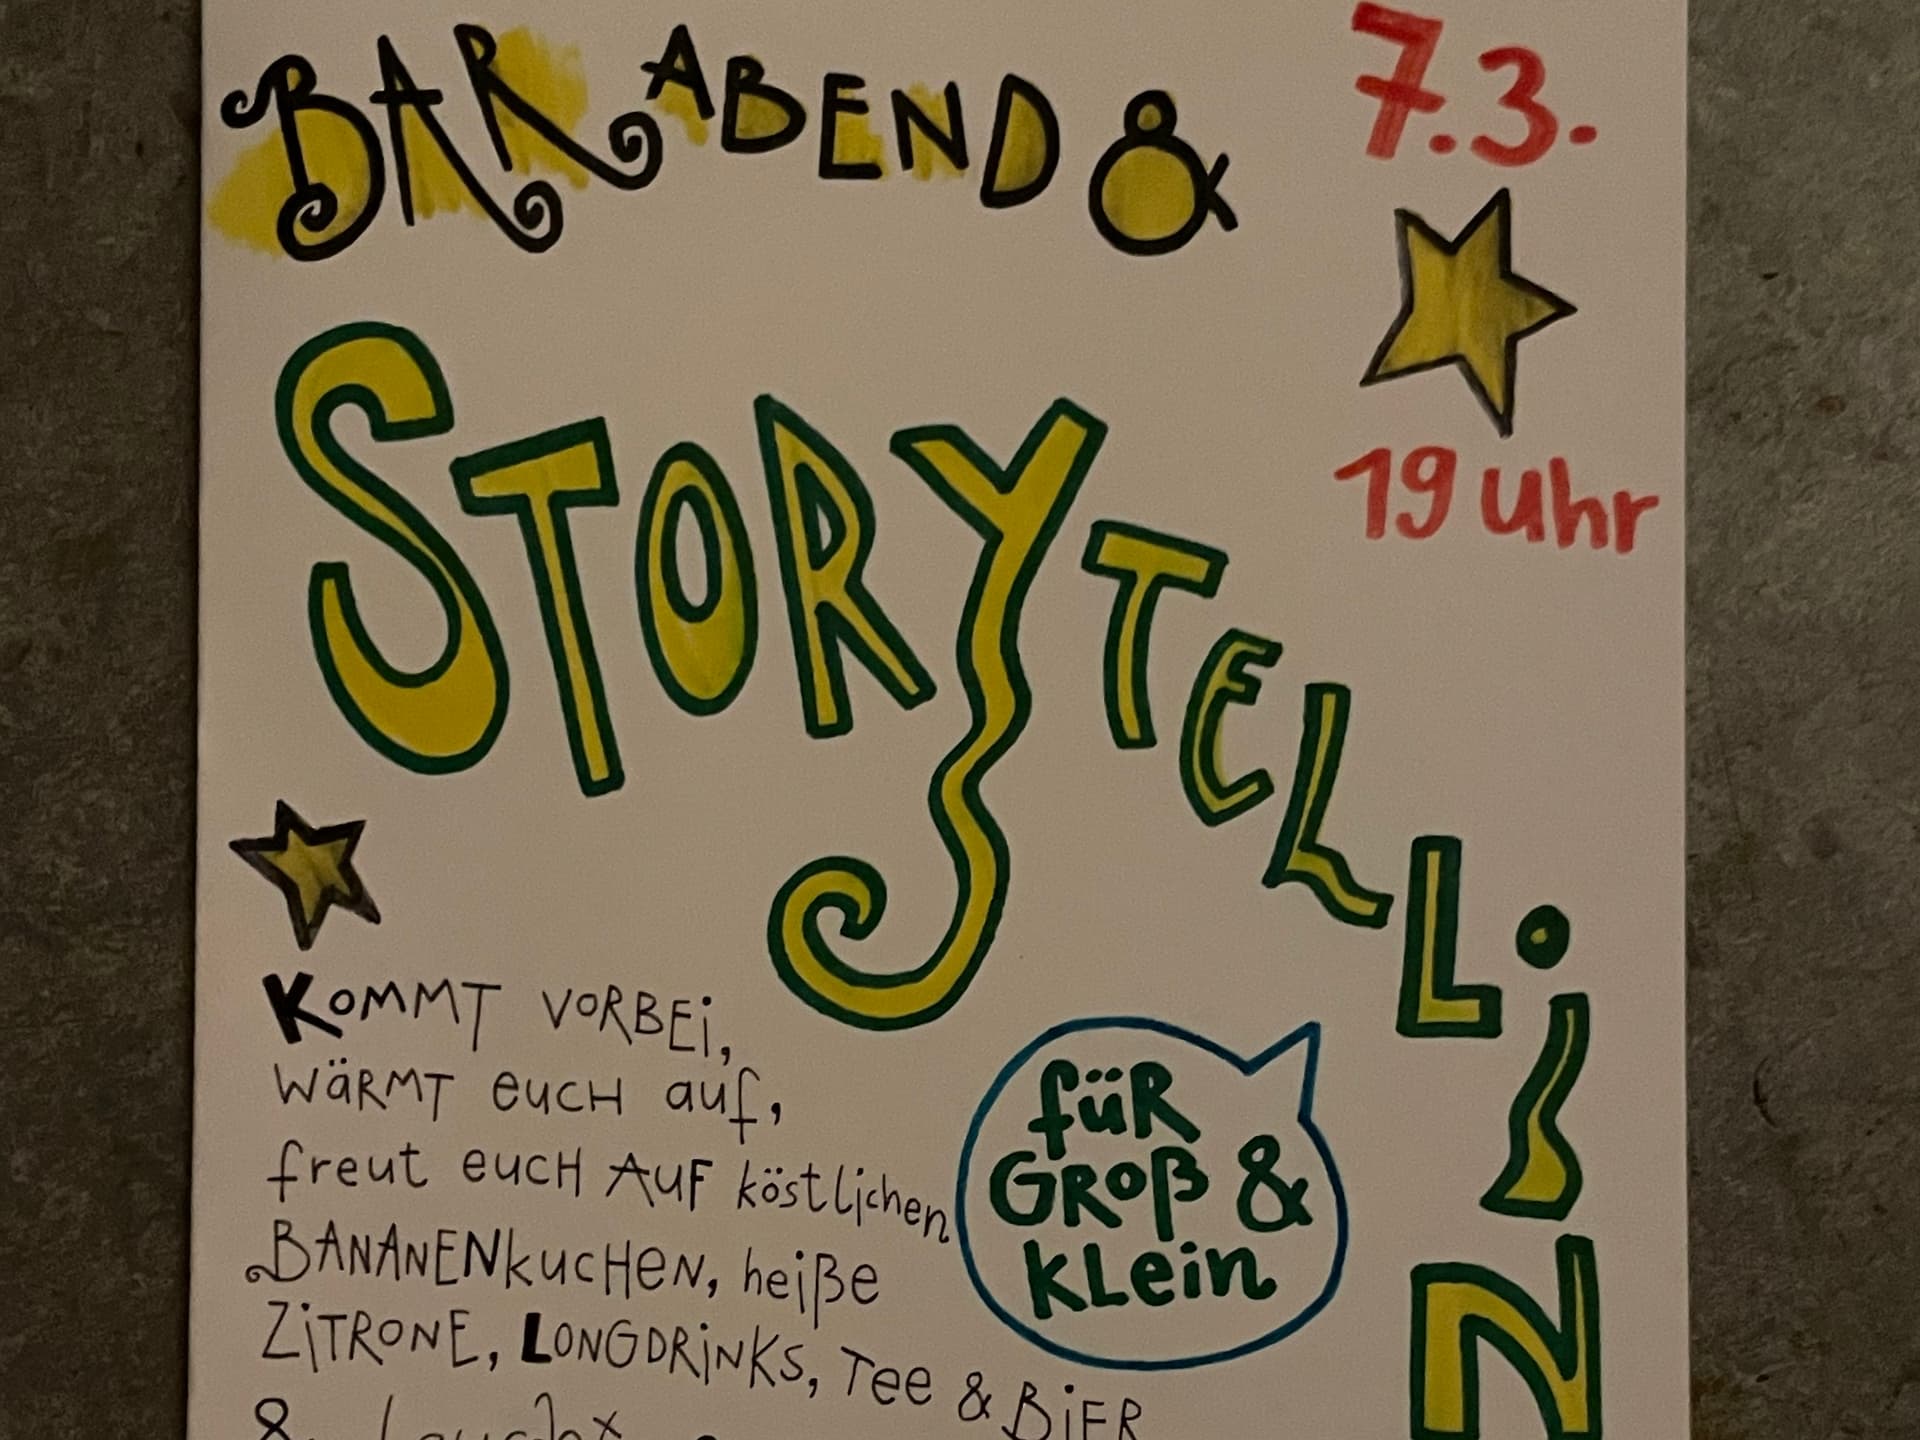 BAR ABEND &
7.3.
19 Uhr
STORYTELLIN
KOMMT VORBEi,
WÄRMT EUCH auf,
freut EUCH AUF köstlichen
BANANENkUCHEN, heiße
ZiTRONE, LONGDRiNKS, Tee & BiER
&
füR
GRoß &
KLein